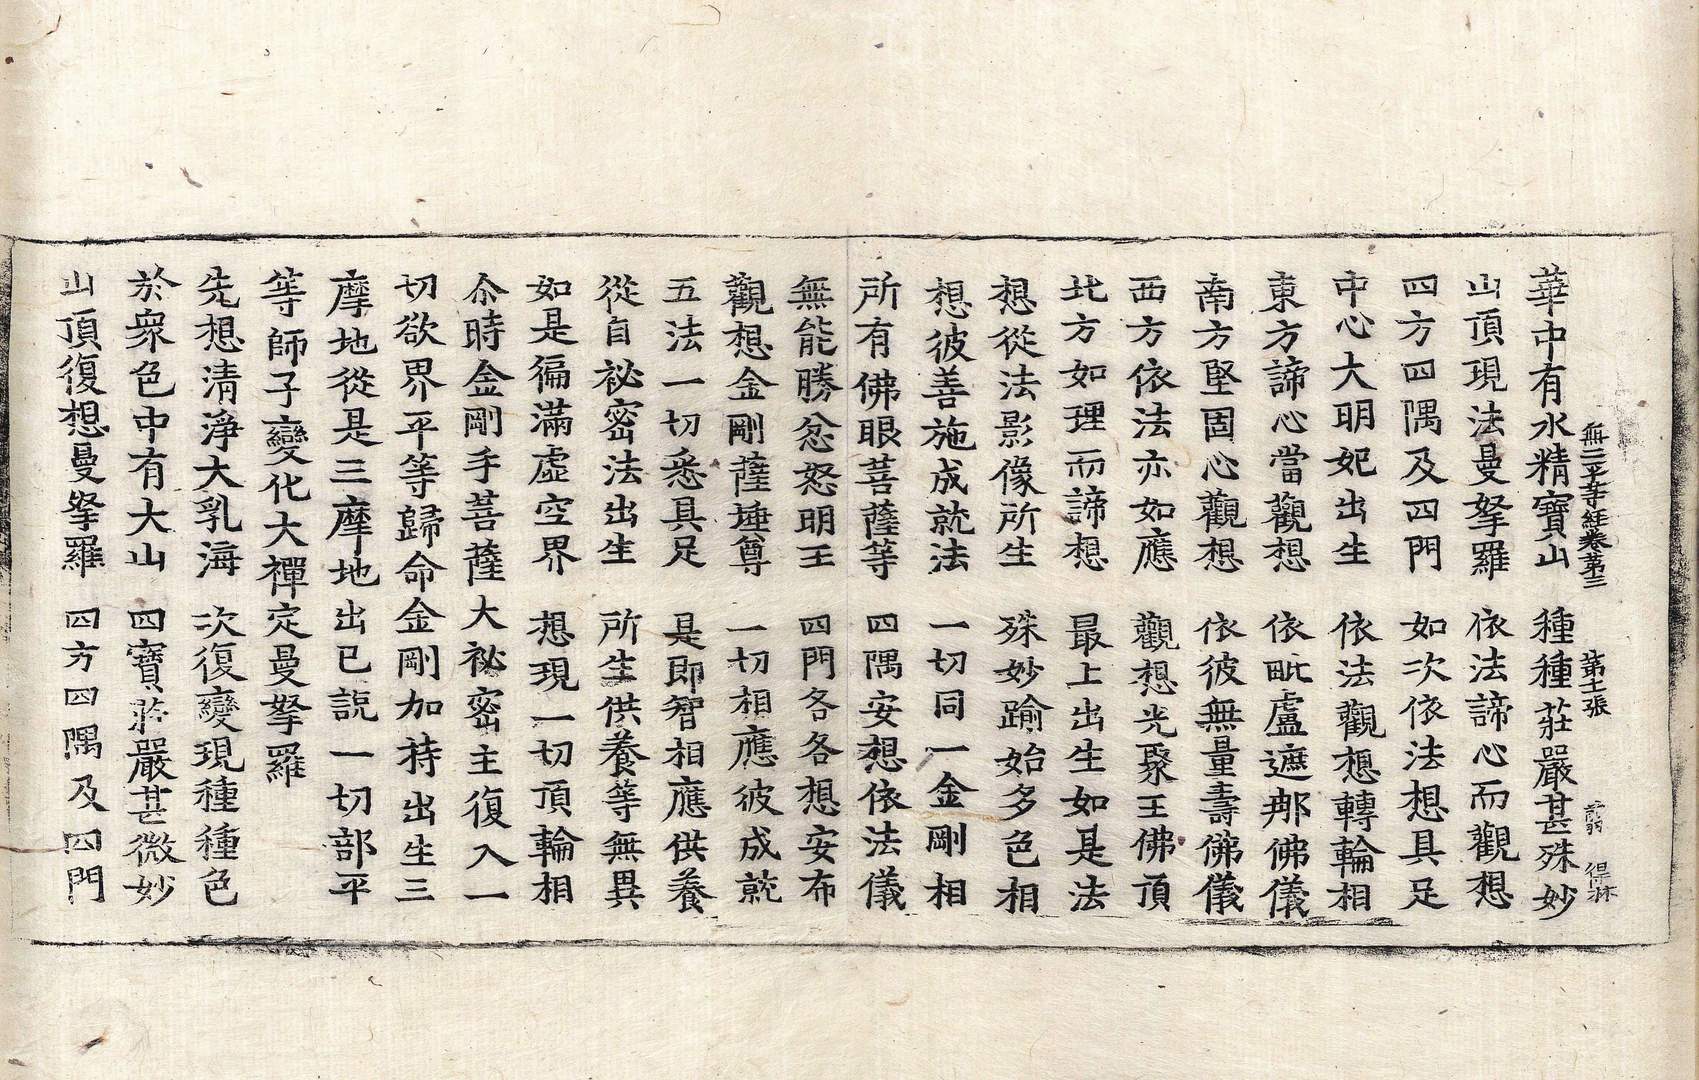 無二平等經卷第三 第十一張 翦 得林
華中有水精寶山 種種莊嚴甚殊妙
山頂現法曼拏羅 依法諦心而觀想
四方四隅及四門 如次依法想具足
中心大明妃出生 依法觀想轉輪相
東方諦心當觀想 依毗盧遮那佛儀
南方堅固心觀想 依彼無量壽佛儀
西方依法亦如應 觀想光聚王佛頂
北方如理而諦想 最上出生如是法
想從法影像所生 殊妙踰始多色相
想彼善施成就法 一切同一金剛相
所有佛眼菩薩等 四隅安想依法儀
無能勝忿怒明王 四門各各想安布
觀想金剛薩埵尊 一切相應彼成就
五法一切悉具足 是即智相應供養
從自祕密法出生 所生供養等無異
如是徧滿虛空界 想現一切頂輪相
尒時金剛手菩薩大祕密主復入一
切欲界平等歸命金剛加持出生三
摩地從是三摩地出已說一切部平
等師子變化大禪定曼拏羅
先想清淨大乳海 次復變現種種色
於衆色中有大山 四寶莊嚴甚微妙
山頂復想曼拏羅 四方四隅及四門